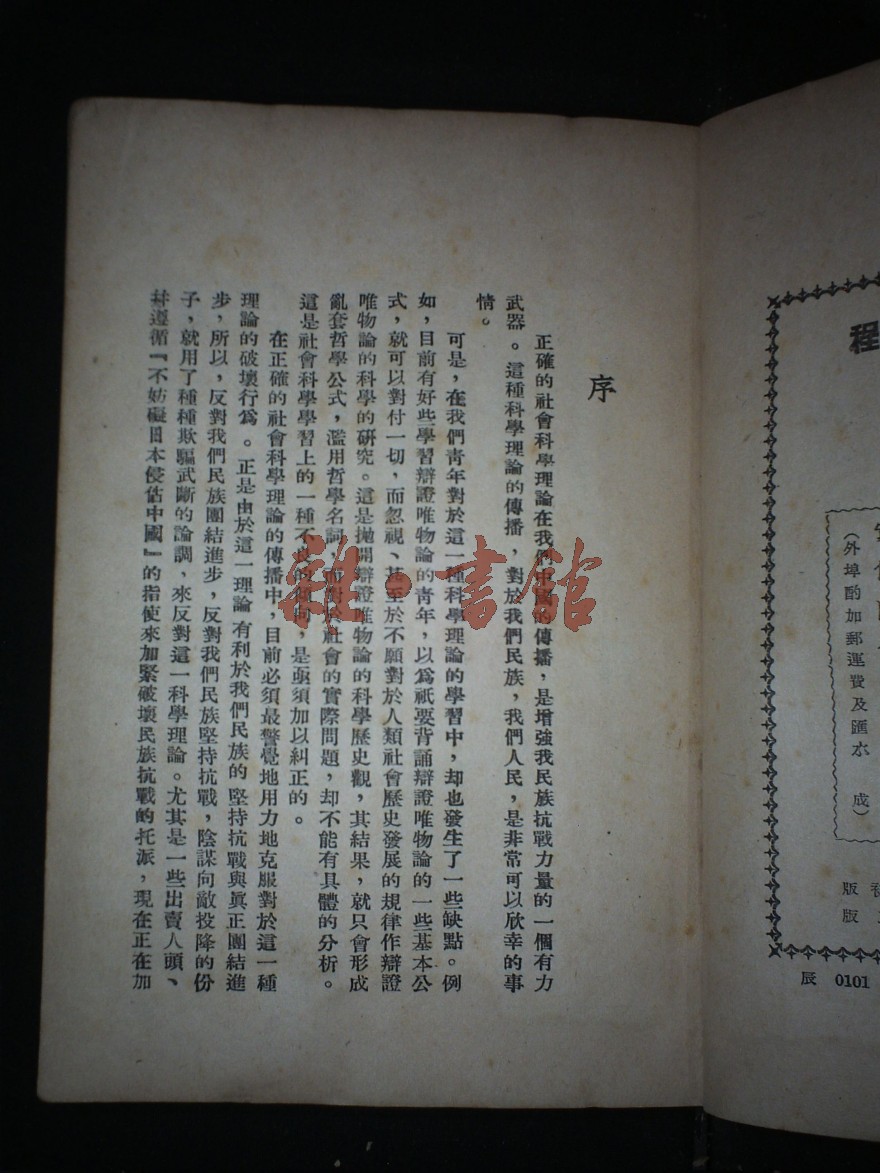 程
(外埠酌加郵運費及匯水 成)
辰 0101
序
正確的社會科學理論在我們中國的傳播，是增強我民族抗戰力量的一個有力
武器。這種科學理論的傳播，對於我們民族，我們人民，是非常可以欣幸的事
情。
可是，在我們青年對於這一種科學理論的學習中，却也發生了一些缺點。例
如，目前有好些學習辯證唯物論的青年，以爲祇要背誦辯證唯物論的一些基本公
式，就可以對付一切，而忽視、甚至於不願對於人類社會歷史發展的規律作辯證
唯物論的科學的研究。這是拋開辯證唯物論的科學歷史觀，其結果，就只會形成
亂套哲學公式，濫用哲學名詞，而對於社會的實際問題，却不能有具體的分析。
這是社會科學學習上的一種不良的傾向，是亟須加以糾正的。
在正確的社會科學理論的傳播中，目前必須最警覺地用力地克服對於這一種
理論的破壞行爲。正是由於這一理論有利於我們民族的堅持抗戰與眞正團結進
步，所以，反對我們民族團結進步，反對我們民族堅持抗戰，陰謀向敵投降的份
子，就用了種種欺騙武斷的論調，來反對這一科學理論。尤其是一些出賣人頭、
幷遵循『不妨礙日本侵佔中國』的指使來加緊破壞民族抗戰的托派，現在正在加
雜·書館